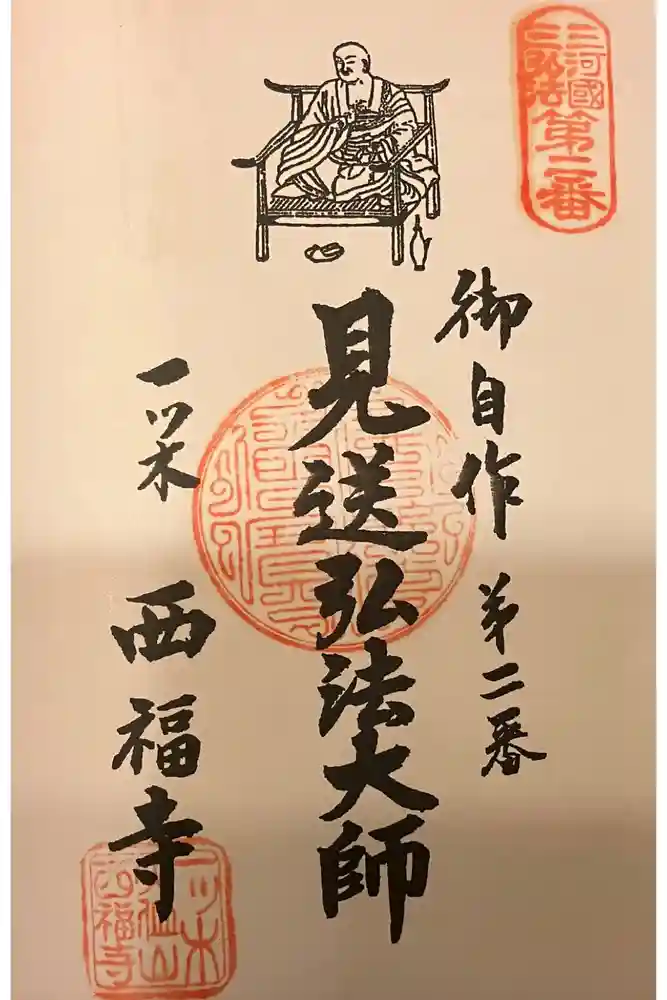 三河國
三弘法
第二番
御自作 第二番
見送弘法大師
一ツ木 西福寺
一ツ木
西福寺